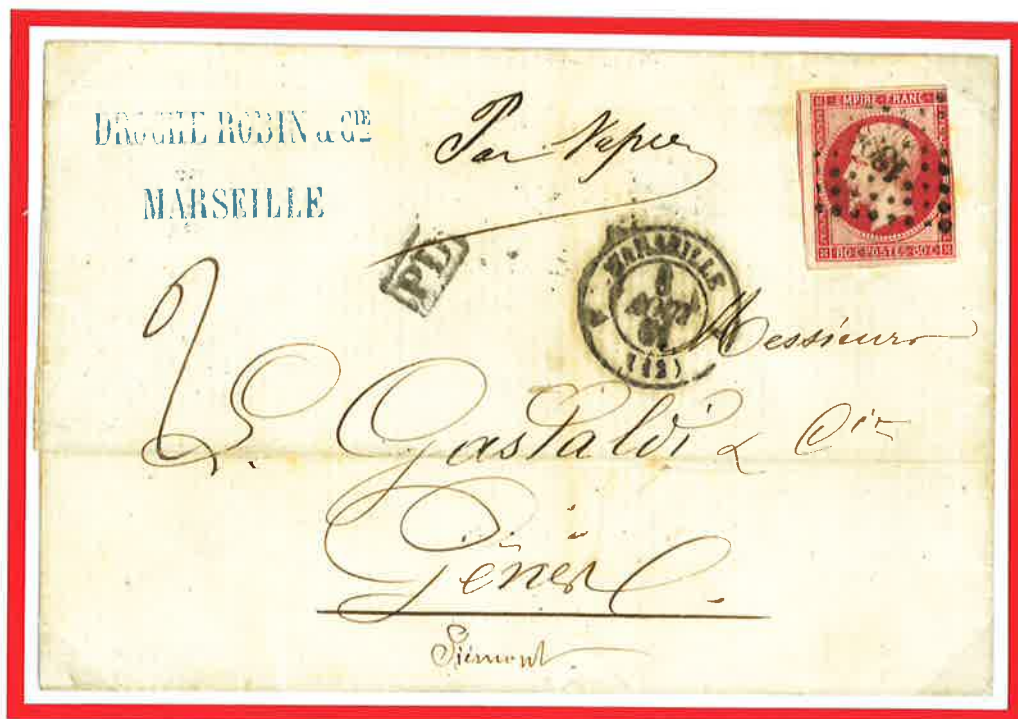 DROCHE ROBIN & CIE
MARSEILLE
Par Vapeur
EMPIRE FRANC
80·C·POSTES·80·C
PD
MARSEILLE
AOUT
(12)
Messieurs
L. Gastaldi & Cie
Gênes
Piémont